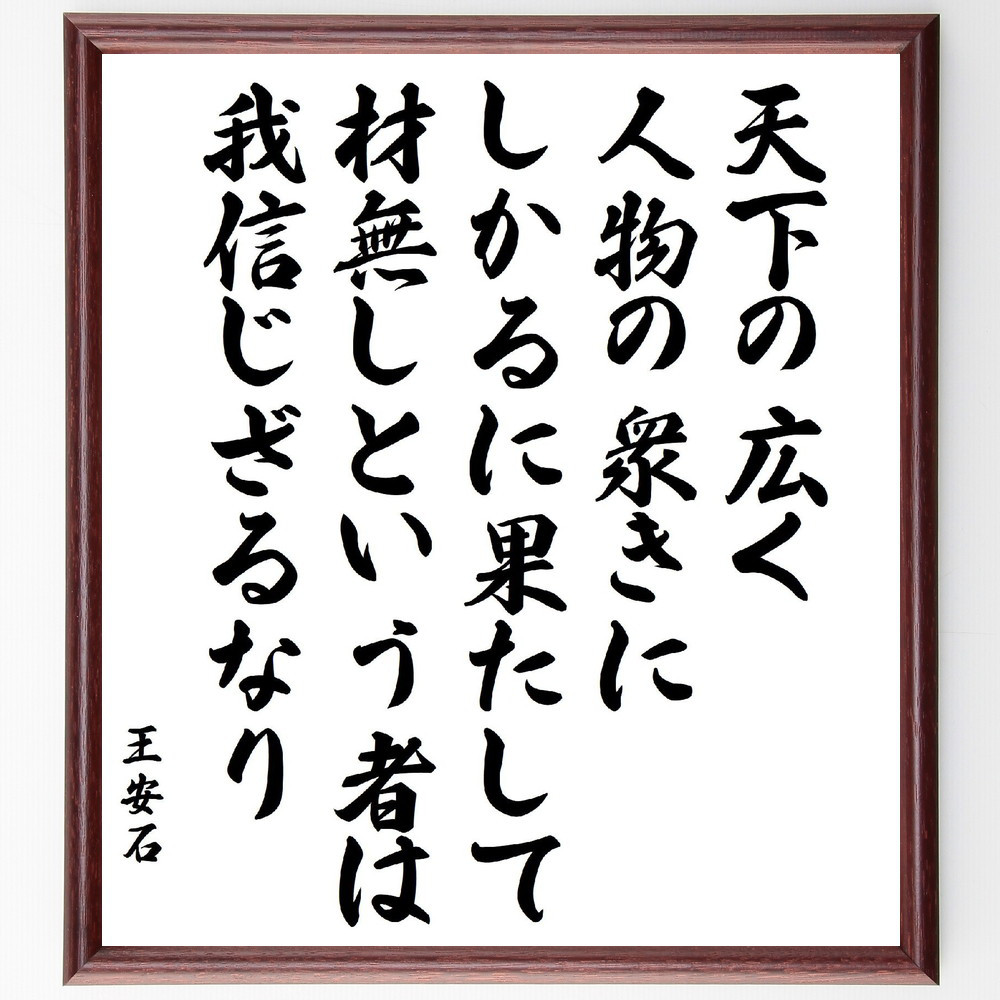 天下の広く
人物の衆きに
しかるに果たして
材無しという者は
我信じざるなり
王安石